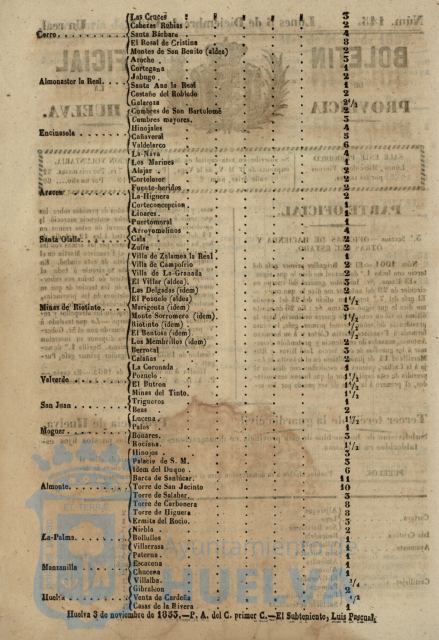 Las Cruces 3
Cabezas Rubias 2
Cerro. Santa Bárbara 4
El Rosal de Cristina 8
Montes de San Benito (aldea) 2
Aroche 3
Cortegana 1
Jabugo 2
Almonaster la Real. Santa Ana la Real 1
Castaño del Robledo 2
Galaroza 2 1/2
Cumbres de San Bartolomé 2
Cumbres mayores. 3
Hinojales 4
Encinasola Cañaveral 5
Valdelarco 6
La-Nava 4
Los Marines 1
Alajar 2
Cortelazor 2
Fuente-heridos 2
Aracena La-Higuera 2
Corteconcepcion 1
Linares. 1
Puertomoral 1
Arroyomolinos 4
Santa Olalla. Cala 2
Zufre 2
Villa de Zalamea la Real 1
Villa de Campofrio 2
Villa de La-Granada 2
El Villar (aldea) 2
Las Delgadas (idem) 2
El Pozuelo (aldea) 1 1/2
Minas de Riotinto. Marigenta (idem) 3
Monte Sorromero (idem) 1/2
Riotinto (idem) 1/2
El Bentoso (idem) 1/2
Los Membrillos (idem) 2
Berrocal 3
Calañas 2
La Coronada 1
Pozuelo 1 1/2
Valverde El Butron 1
Minas del Tinto. 1 1/2
Trigueros 1
San Juan Beas 2
Lucena 1 1/2
Palos 1
Moguer Bonares. 3
Rociana. 1 1/2
Hinojos 3
Palacio de S. M. 3
Idem del Duque 6
Barca de Sanlúcar. 11
Almonte. Torre de San Jacinto 10
Torre de Salabar. 3
Torre de Carbonera 8
Torre de Higuera 8
Ermita del Rocio. 3
Niebla 2
La-Palma. Bollullos 1
Villarrasa 1
Paterna 1
Manzanilla Escacena 1
Chucena 1
Villalba. 3/4
Gibraleon 2
Huelva Venta de Cardeña 1/2
Casas de la Rivera 1
Huelva 3 de noviembre de 1855.—P. A. del C. primer C.—El Subteniente, Luis Pascual.
EL TERRÆ
Ayuntamiento de
HUELVA